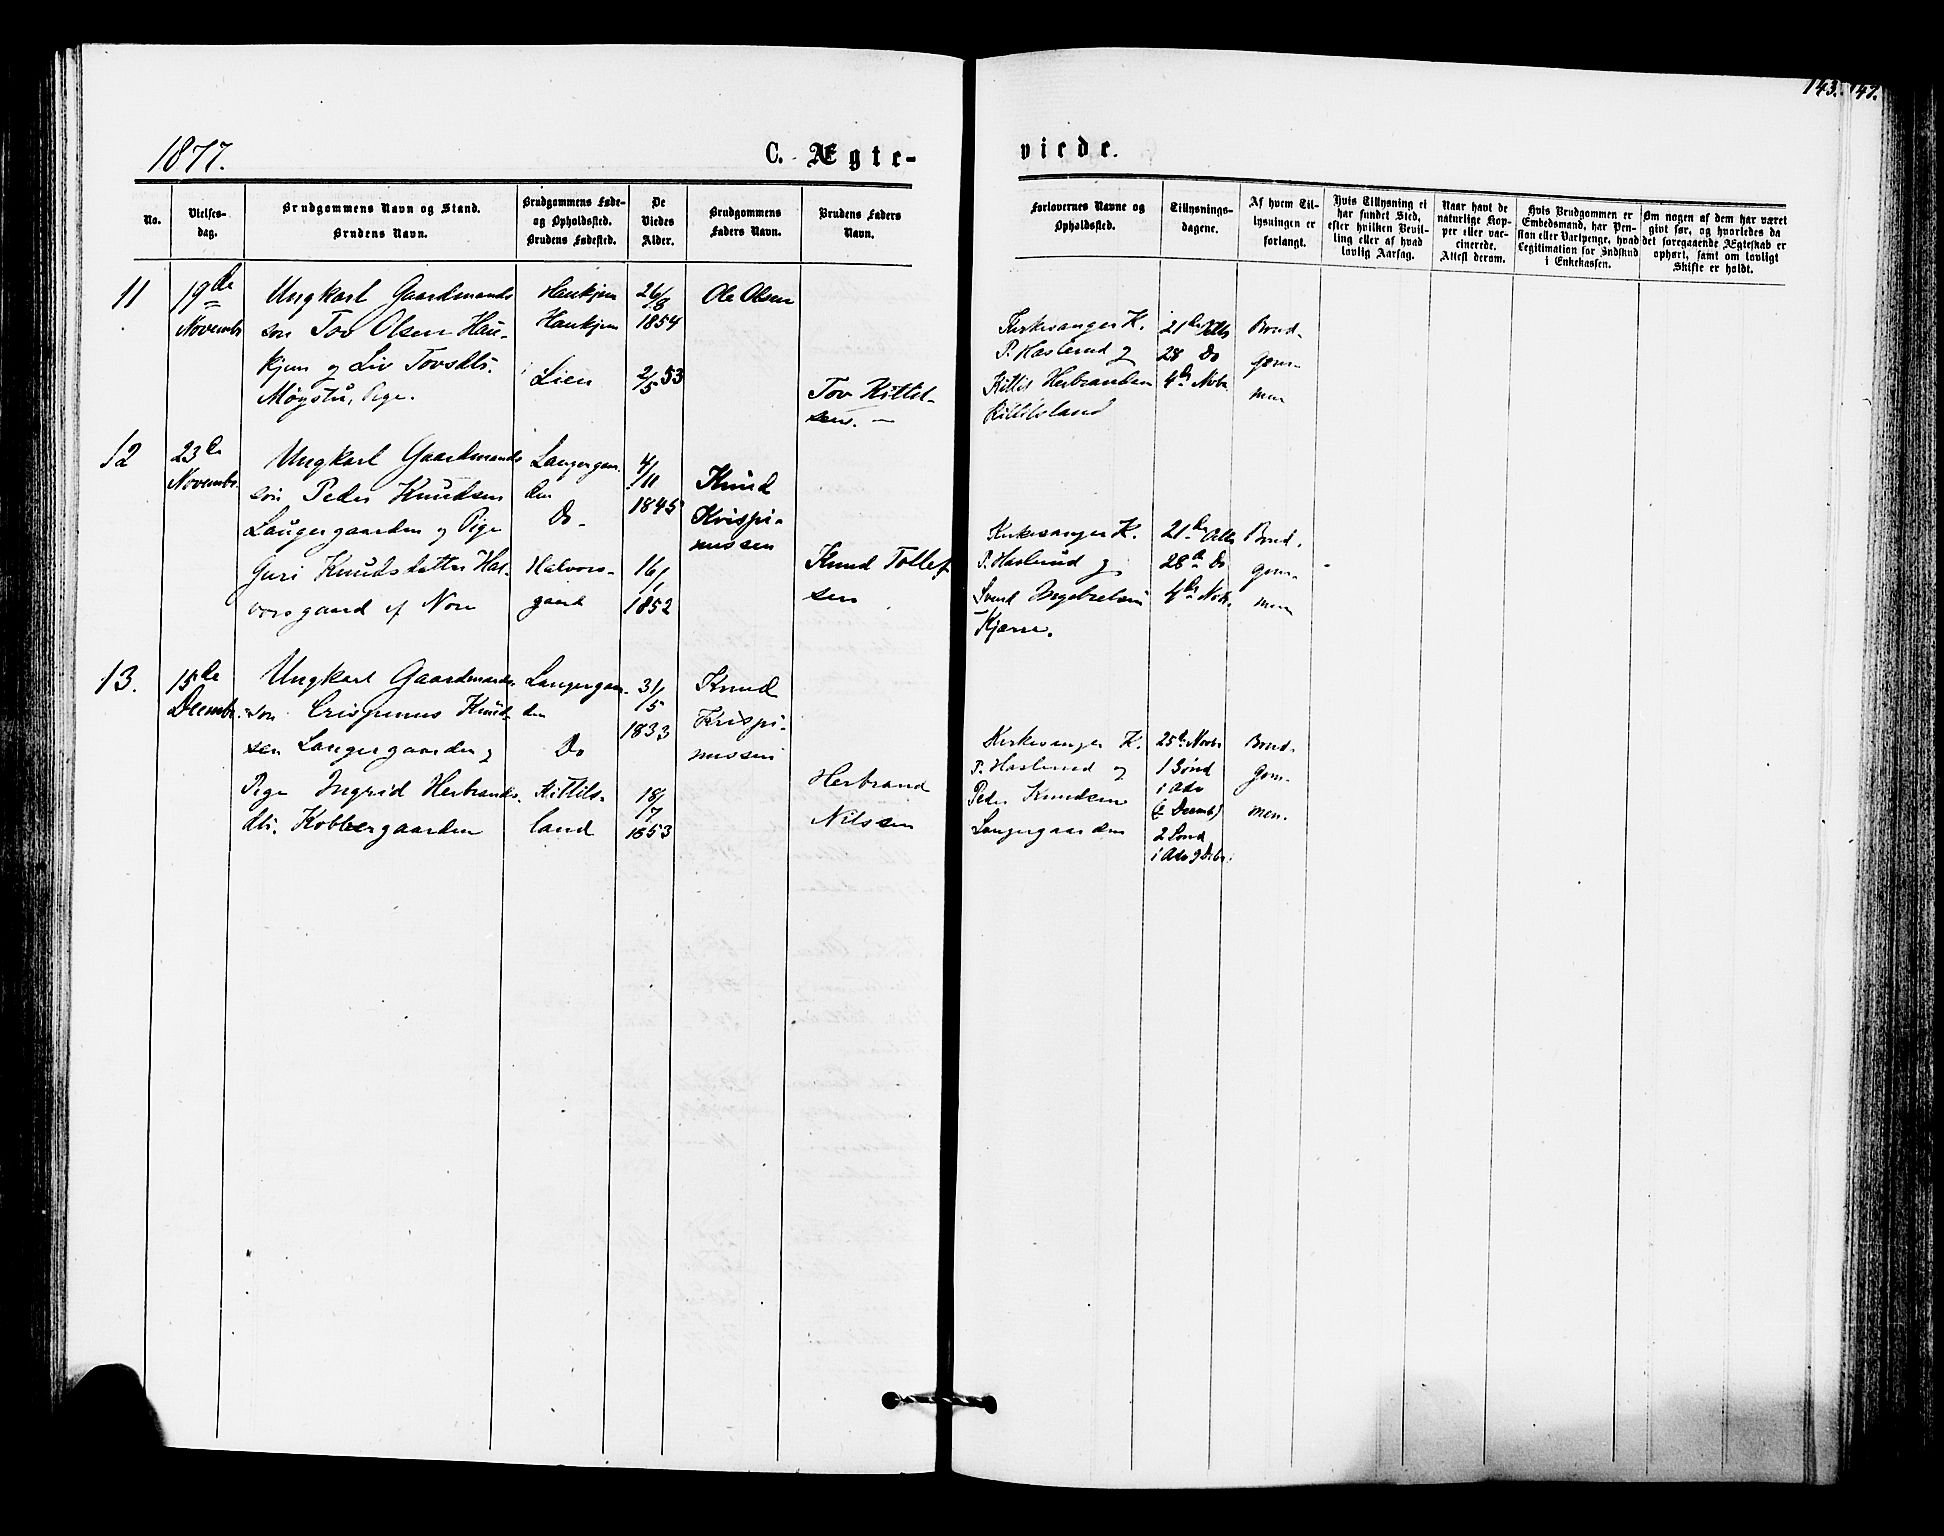 143. 147.
1877.
C. Ægte-
viede.
No.
Vielses-
dag.
Brudgommens Navn og Stand.
Brudens Navn.
Brudgommens Føde-
og Opholdssted.
Brudens Fødested.
De
Viedes
Alder.
Brudgommens
Faders Navn.
Brudens Faders
Navn.
Forlovernes Navne og
Opholdssted.
Tillysnings-
dagene.
Af hvem Til-
lysningen er
forlangt.
Hvis Tillysning ei
har fundet Sted,
efter hvilken Bevil-
ling eller af hvad
lovlig Aarsag.
Naar havt de
naturlige Kop-
per eller vac-
cinerede.
Attest derom.
Hvis Brudgommen er
Embedsmand, har Pen-
sion eller Vartpenge, hvad
Legitimation for Indskud
i Enkekassen.
Om nogen af dem har været
givt før, og hvorledes da
det foregaaende Ægteskab er
ophørt, samt om lovligt
Skifte er holdt.
11
19de
Novembr
Ungkarl Gaardmands
søn Tov Olsen Hau-
kjem og Liv Tovsdtr.
Møystu, Pige.
Haukjem
Haukjem
Lien
26/8
1854
2/5 53
Ole Olsen
Tov Kittil-
sen. —
Kirkesanger K.
P. Haslund og
Kittil Herbrandsen
Kittilsland
21de Octbr
28 Do
4de Novbr.
Brud-
gom-
men
12
23de
Novembr.
Ungkarl Gaardmands
søn Peder Knudsen
Langergaarden og Pige
Guri Knudsdatter Hal-
vorsgaard af Nore
Langergaar-
den
Do-
Halvors-
gaard
4/11
1845
16/1
1852
Knud
Krispi-
nussen
Knud Tollef-
sen
Kirkesanger K.
P. Haslund og
Svend Ingebretsen
Kjærre.
21de Octbr
28de Do
4de Novbr.
Brud-
gom-
men
13.
15de
Decembr.
Ungkarl Gaardmands-
søn Crispinus Knud-
sen Langergaarden og
Pige Ingrid Herbrands-
dtr. Kobbergaarden
Langergaar-
den
Do
Kittils-
land
31/5
1833
18/7
1853
Knud
Krispi-
nussen
Herbrand
Nilssen
Kirkesanger K.
P. Haslund og
Peder Knudsen
Langergaarden
25de Novbr
1 Sønd
i Adv
(2 Decemb)
2 Sønd
i Adv 9 Decbr.
Brud-
gom-
men.